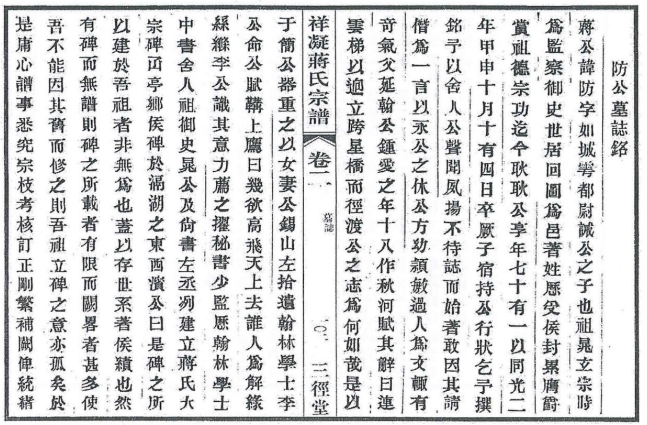 防公墓誌銘
蔣公諱防字如城雩都尉誡公之子也祖晁玄宗時
爲監察御史世居回圖爲邑著姓歷受侯封累膺爵
賞祖德宗功迄今耿耿公享年七十有一以同光二
年甲申十月十有四日卒厥子宿持公行狀乞予撰
銘予以舍人公聲聞夙揚不待誌而始著敢因其請
僭爲一言以永公之休公方幼穎敏過人爲文輒有
奇氣父延翰公鍾愛之年十八作秋河賦其辭曰連
雲梯以逈立跨星橋而徑渡公之志爲何如哉是以
祥凝蔣氏宗譜
卷二
墓誌
一〇一
三徑堂
于簡公器重之以女妻公錫山左拾遺翰林學士李
公命公賦鞲上鷹曰幾欲高飛天上去誰人爲解綠
絲縧李公識其意力薦之擢秘書少監歷翰林學士
中書舍人祖御史晁公及尙書左丞冽建立蔣氏大
宗碑㓊亭鄉侯碑於滆湖之東西濱公曰是碑之所
以建於吾祖者非無爲也蓋以存世系著侯績也然
有碑而無譜則碑之所載者有限而闕畧者甚多使
吾不能因其舊而修之則吾祖立碑之意亦孤矣於
是庸心譜事悉究宗枝考核訂正剛繁補闕俾統緒